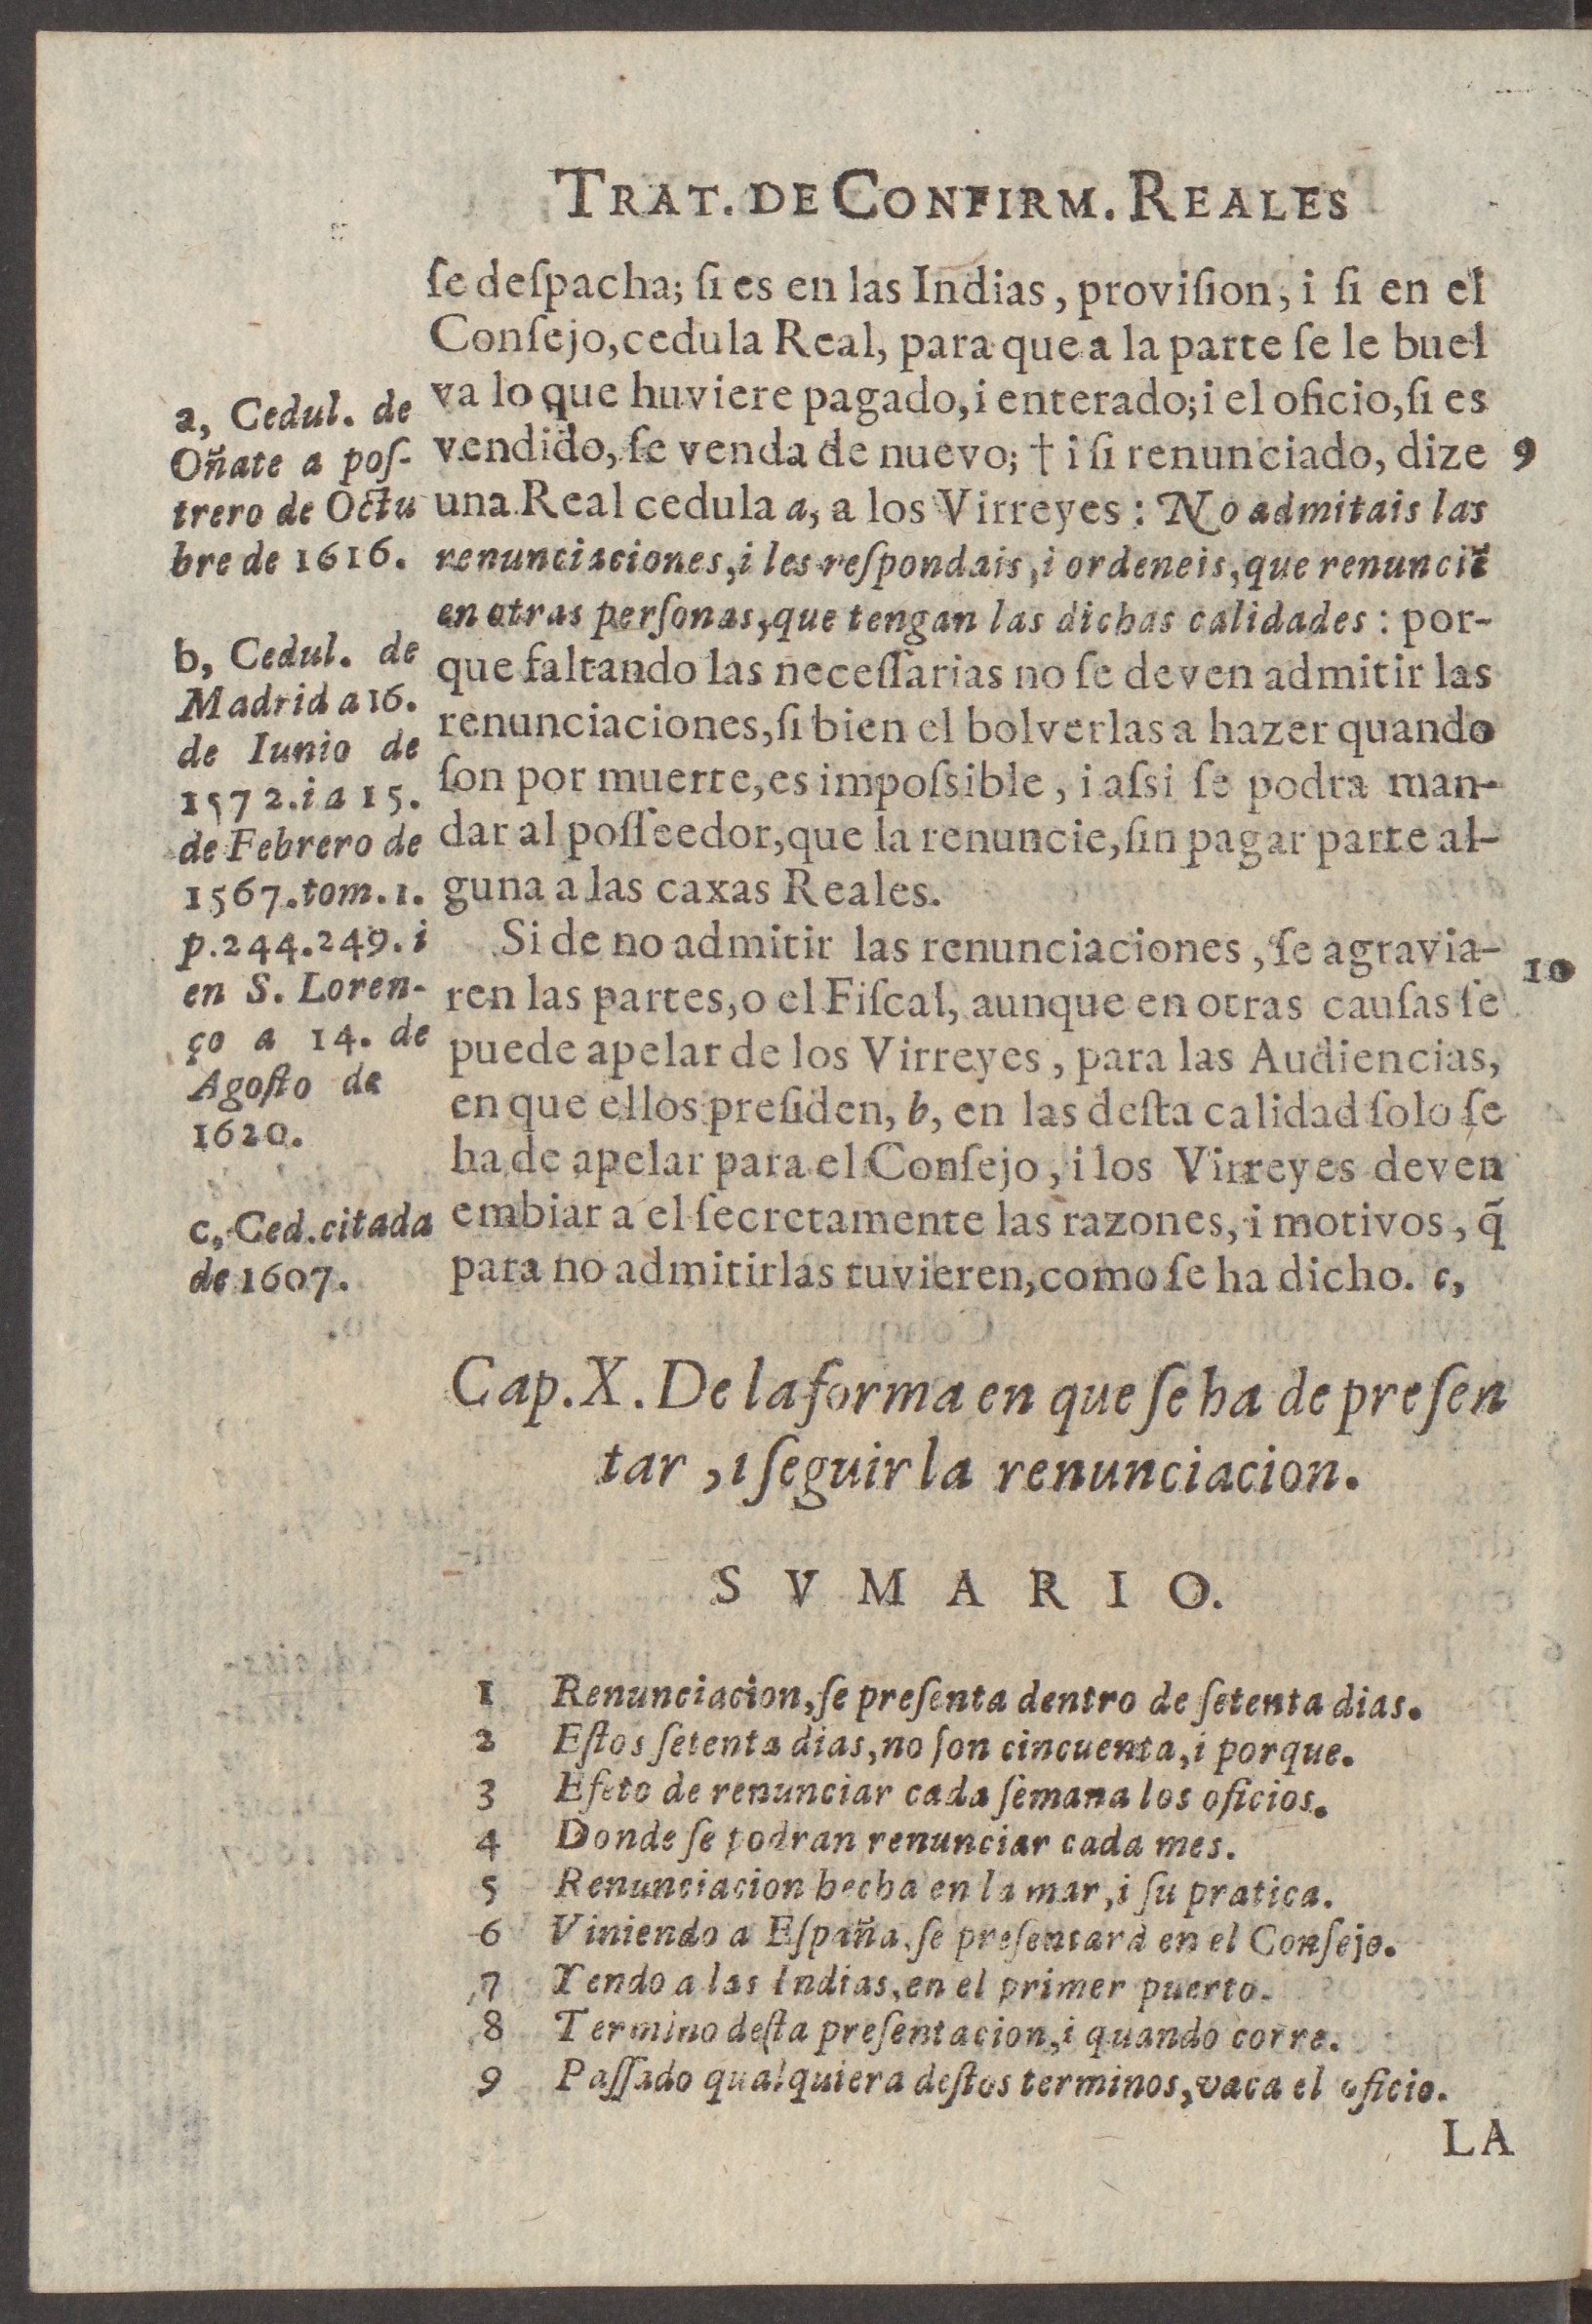 TRAT. DE CONFIRM. REALES
ſe deſpacha; ſi es en las Indias, proviſion, i ſi en el
Conſejo, cedula Real, para que a la parte ſe le buel
va lo que huviere pagado, i enterado; i el oficio, ſi es
vendido, ſe venda de nuevo; † i ſi renunciado, dize 9
una Real cedula a, a los Virreyes: No admitais las
renunciaciones, i les reſpondais, i ordeneis, que renunciẽ
en otras perſonas, que tengan las dichas calidades: por-
que faltando las neceſſarias no ſe deven admitir las
renunciaciones, ſi bien el bolverlas a hazer quando
ſon por muerte, es impoſsible, i aſsi ſe podra man-
dar al poſſeedor, que la renuncie, ſin pagar parte al-
guna a las caxas Reales.
Si de no admitir las renunciaciones, ſe agravia-
ren las partes, o el Fiſcal, aunque en otras cauſas ſe 10
puede apelar de los Virreyes, para las Audiencias,
en que ellos preſiden, b, en las deſta calidad ſolo ſe
ha de apelar para el Conſejo, i los Virreyes deven
embiar a el ſecretamente las razones, i motivos, q̃
para no admitirlas tuvieren, como ſe ha dicho. c,
a, Cedul. de
Oñate a poſ-
trero de Octu
bre de 1616.
b, Cedul. de
Madrid a 16.
de Iunio de
1572. i a 15.
de Febrero de
1567. tom. 1.
p. 244. 249. i
en S. Loren-
ço a 14. de
Agoſto de
1620.
c, Ced. citada
de 1607.
Cap. X. De la forma en que ſe ha de preſen
tar, i ſeguir la renunciacion.
SVMARIO.
1 Renunciacion, ſe preſenta dentro de ſetenta dias.
2 Eſtos ſetenta dias, no ſon cincuenta, i porque.
3 Efeto de renunciar cada ſemana los oficios.
4 Donde ſe podran renunciar cada mes.
5 Renunciacion hecha en la mar, i ſu pratica.
6 Viniendo a Eſpaña, ſe preſentarà en el Conſejo.
7 Yendo a las Indias, en el primer puerto.
8 Termino deſta preſentacion, i quando corre.
9 Paſſado qualquiera deſtos terminos, vaca el oficio.
LA